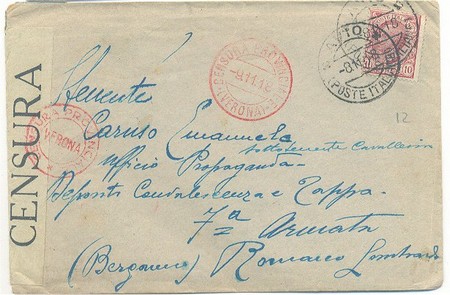 CENSURA
CENSURA PROVINCIA
VERONA
CENSURA PROVINCIA
-9.11.18
(VERONA)
(POSTE ITALIANE)
10
12
Tenente
Caruso Emanuele
sottotenente Cavalleria
Ufficio Propaganda
Deposito Convalescenza e Tappa
7ª Armata
(Bergamo) Romano Lombardo